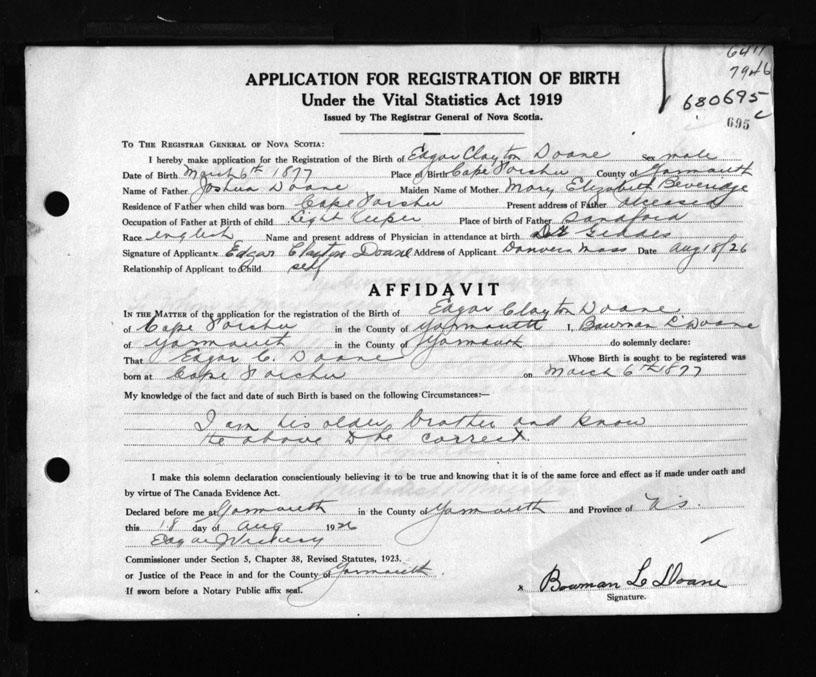 6411
7946
680695
695 c
APPLICATION FOR REGISTRATION OF BIRTH
Under the Vital Statistics Act 1919
Issued by The Registrar General of Nova Scotia.
TO THE REGISTRAR GENERAL OF NOVA SCOTIA:
I hereby make application for the Registration of the Birth of Edgar Clayton Doane Sex male
Date of Birth March 6th 1877 Place of Birth Cape Forchu County of Yarmouth
Name of Father Joshua Doane Maiden Name of Mother Mary Elizabeth Beveridge
Residence of Father when child was born Cape Forchu Present address of Father deceased
Occupation of Father at Birth of child Light Keeper Place of birth of Father Sandford
Race english Name and present address of Physician in attendance at birth Dr Geddes
Signature of Applicant x Edgar Clayton Doane Address of Applicant Danvers Mass Date Aug 18/26
Relationship of Applicant to Child self
AFFIDAVIT
IN THE MATTER of the application for the registration of the Birth of Edgar Clayton Doane
of Cape Forchu in the County of Yarmouth I, Bowman L Doane
of Yarmouth in the County of Yarmouth do solemnly declare:
That Edgar C. Doane Whose Birth is sought to be registered was
born at Cape Forchu on March 6th 1877
My knowledge of the fact and date of such Birth is based on the following Circumstances:—
I am his older brother and know
the above to be correct
I make this solemn declaration conscientiously believing it to be true and knowing that it is of the same force and effect as if made under oath and
by virtue of The Canada Evidence Act.
Declared before me at Yarmouth in the County of Yarmouth and Province of N.S.
this 18 day of Aug 1926
Edgar
Commissioner under Section 5, Chapter 38, Revised Statutes, 1923.
or Justice of the Peace in and for the County of Yarmouth.
If sworn before a Notary Public affix seal.
x Bowman L Doane
Signature.